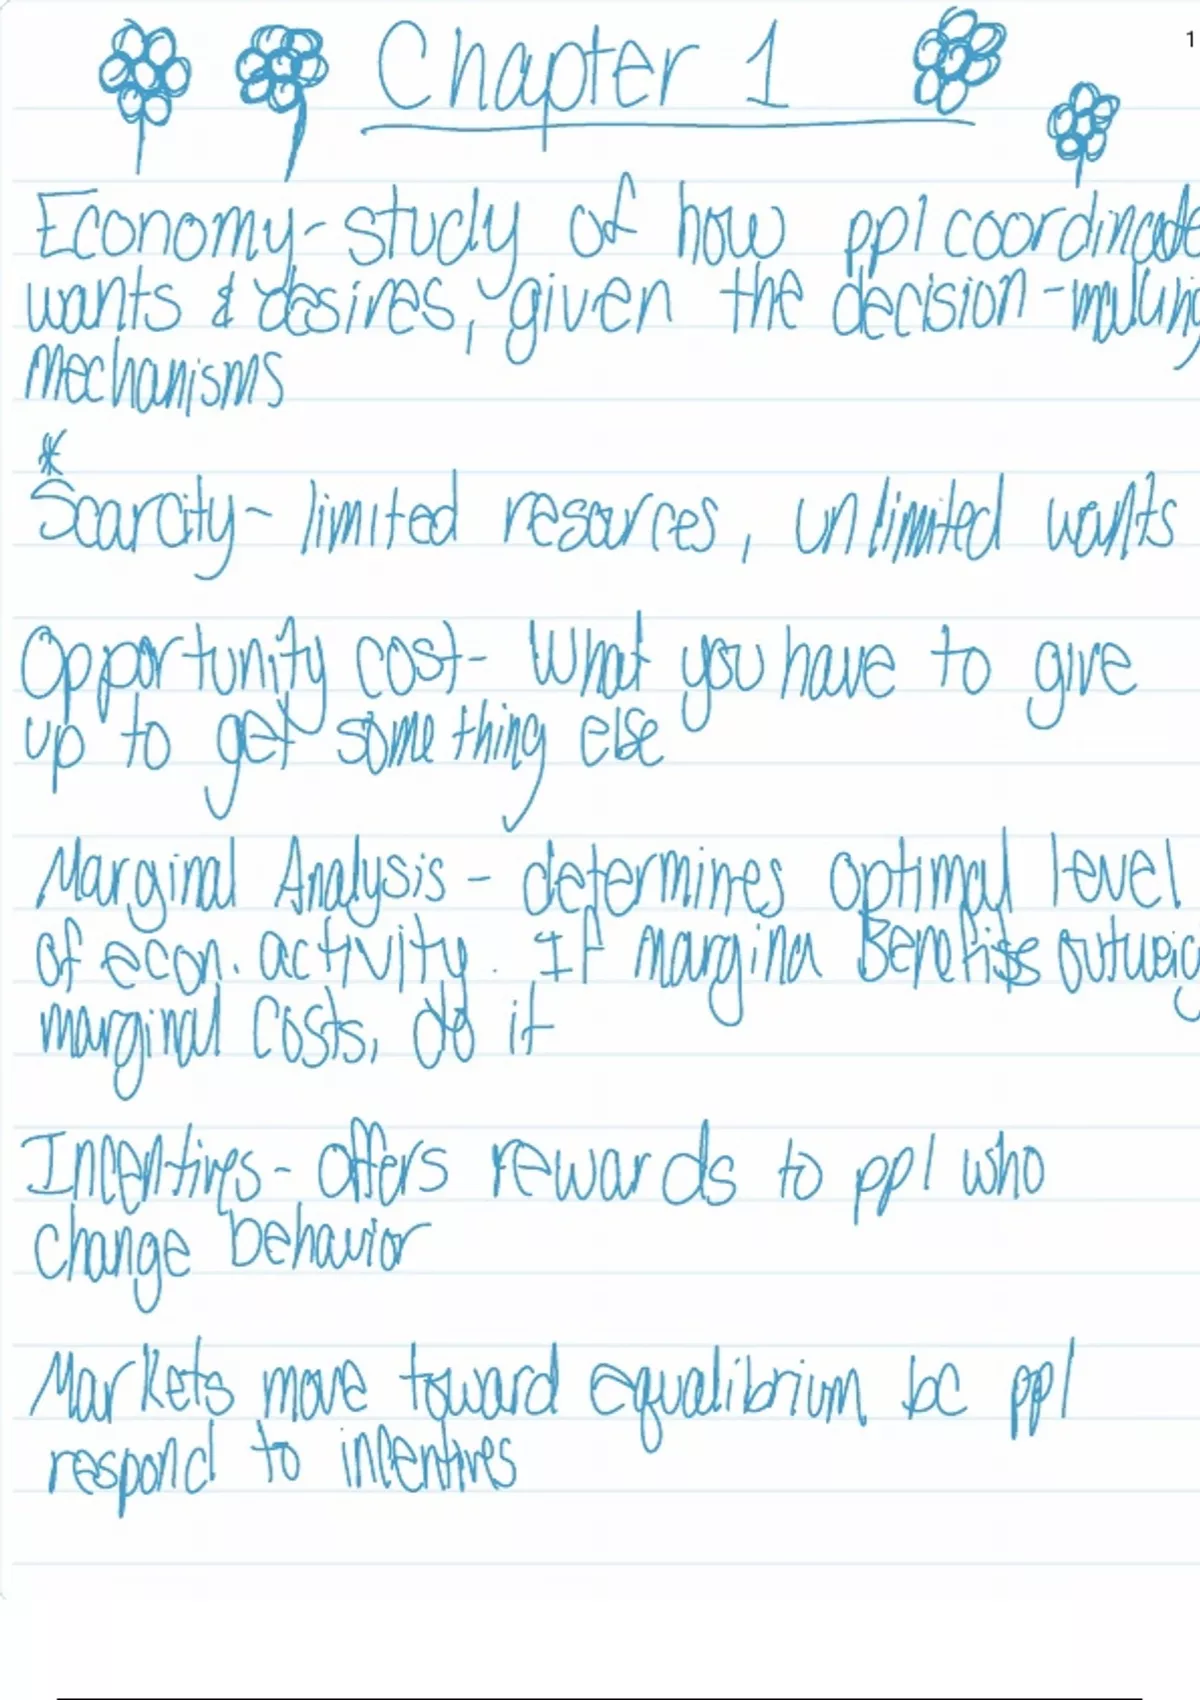 Chapter 1
1
Economy-study of how ppl coordinate
wants & desires, given the decision-making
mechanisms
*
Scarcity- limited resources, unlimited wants
Opportunity cost- What you have to give
up to get something else
Marginal Analysis - determines optimal level
of econ. activity. If marginal Benefits outweig
marginal Costs, do it
Incentives- offers rewards to ppl who
change behavior
Markets move toward equalibrium bc ppl
respond to incentives